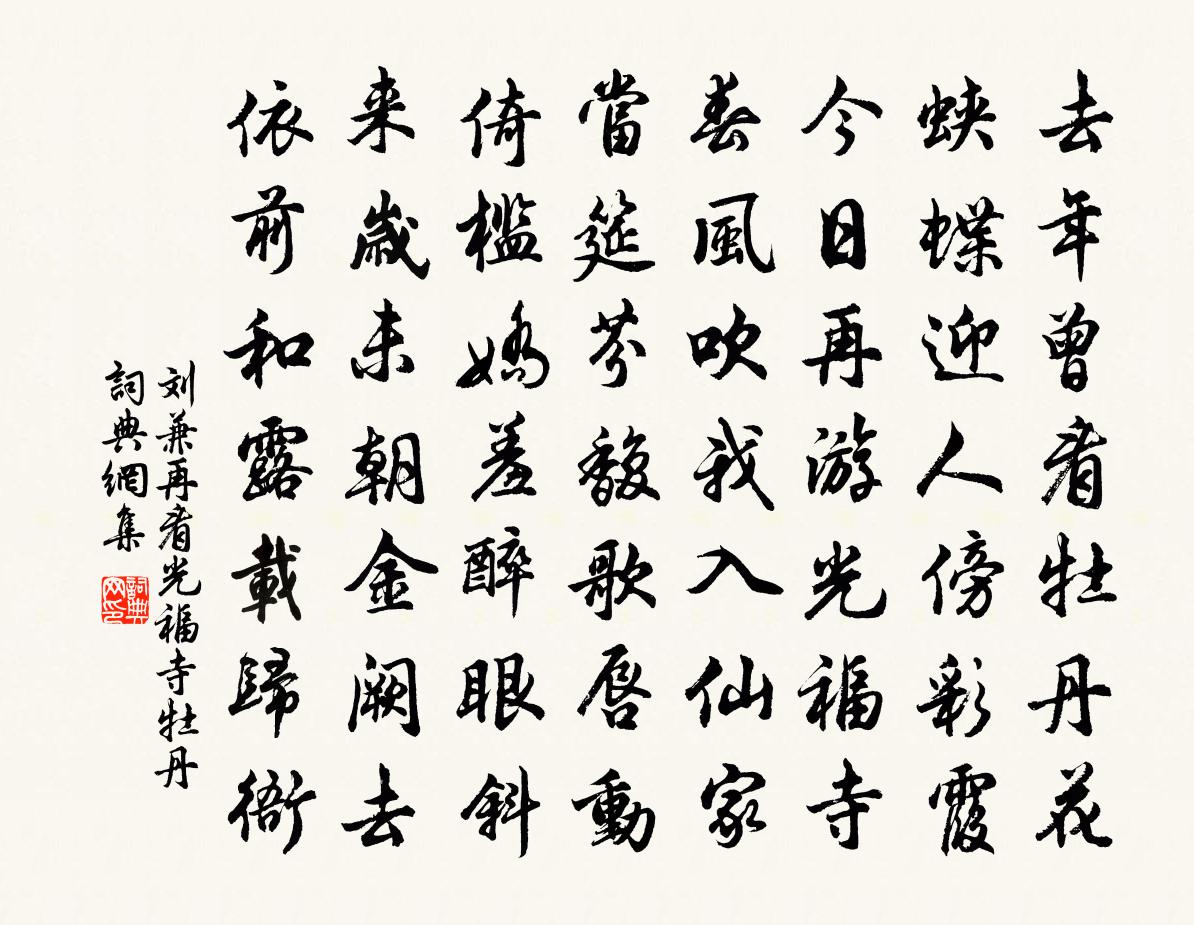 去年曾看牡丹花
蛺蝶迎人傍彩霞
今日再游光福寺
春風吹我入仙家
當筵芬馥歌唇動
倚檻嬌羞醉眼斜
来歲未朝金闕去
依前和露載歸衙
刘兼再看光福寺牡丹
詞典網集
詞典网印